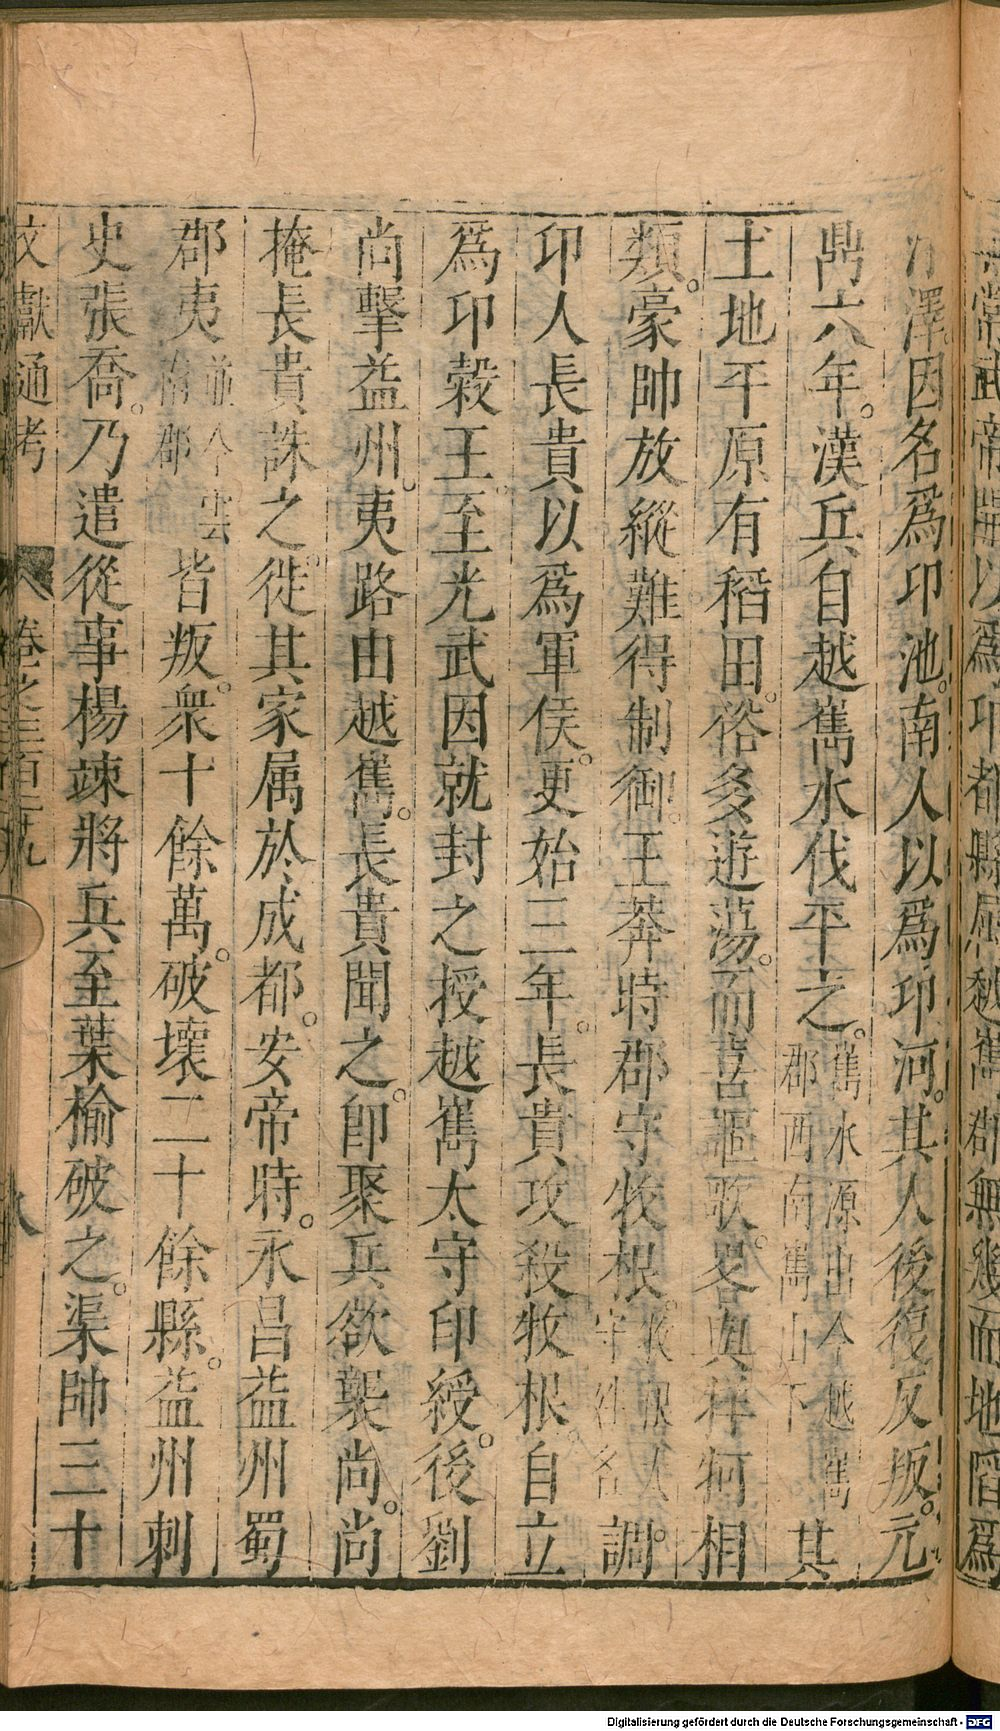 常武帝開以爲卭都縣屈越嶲郡無幾而地陷爲
澤因名爲卭池南人以爲卭河其人後復反叛元
鼎六年漢兵自越嶲水伐平之嶲水源出今越嶲郡西南嶲山下其
土地平原有稻田俗多遊蕩而喜謳歌畧與牂牁相
類豪帥放縱難得制御王莽時郡守牧根牧根人調
卭人長貴以爲軍侯更始三年長貴攻殺牧根自立
爲卭榖王至光武因就封之授越嶲太守印綬後劉
尚擊益州夷路由越嶲長貴聞之即聚兵欲襲尚尚
掩長貴誅之徙其家属於成都安帝時永昌益州蜀
郡夷並今雲南郡皆叛衆十餘萬破壞二十餘縣益州刺
史張喬乃遣從事楊竦將兵至葉榆破之渠帥三十
文獻通考 卷之三百二十九 八
Digitalisierung gefördert durch die Deutsche Forschungsgemeinschaft - DFG